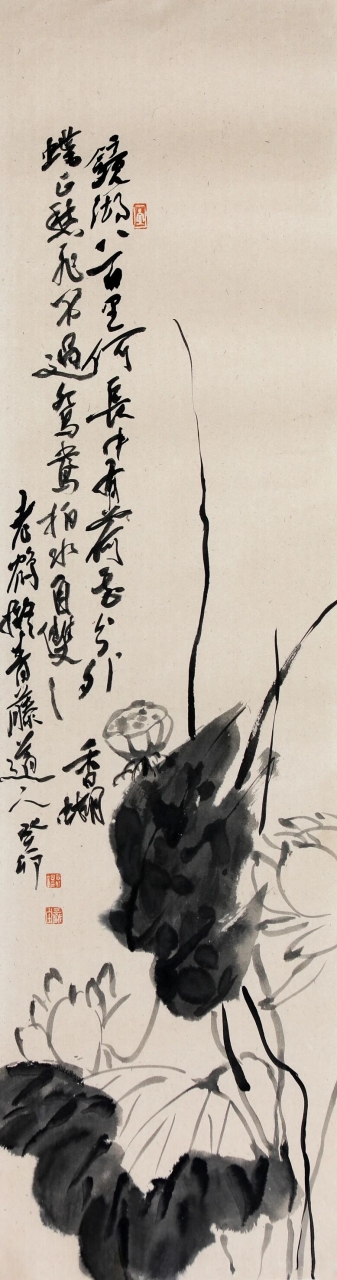 鏡湖八百里何長中有荷花分外香蝴
蝶正愁飛不過鴛鴦拍水自雙〻
老鶴擬青藤道人癸卯